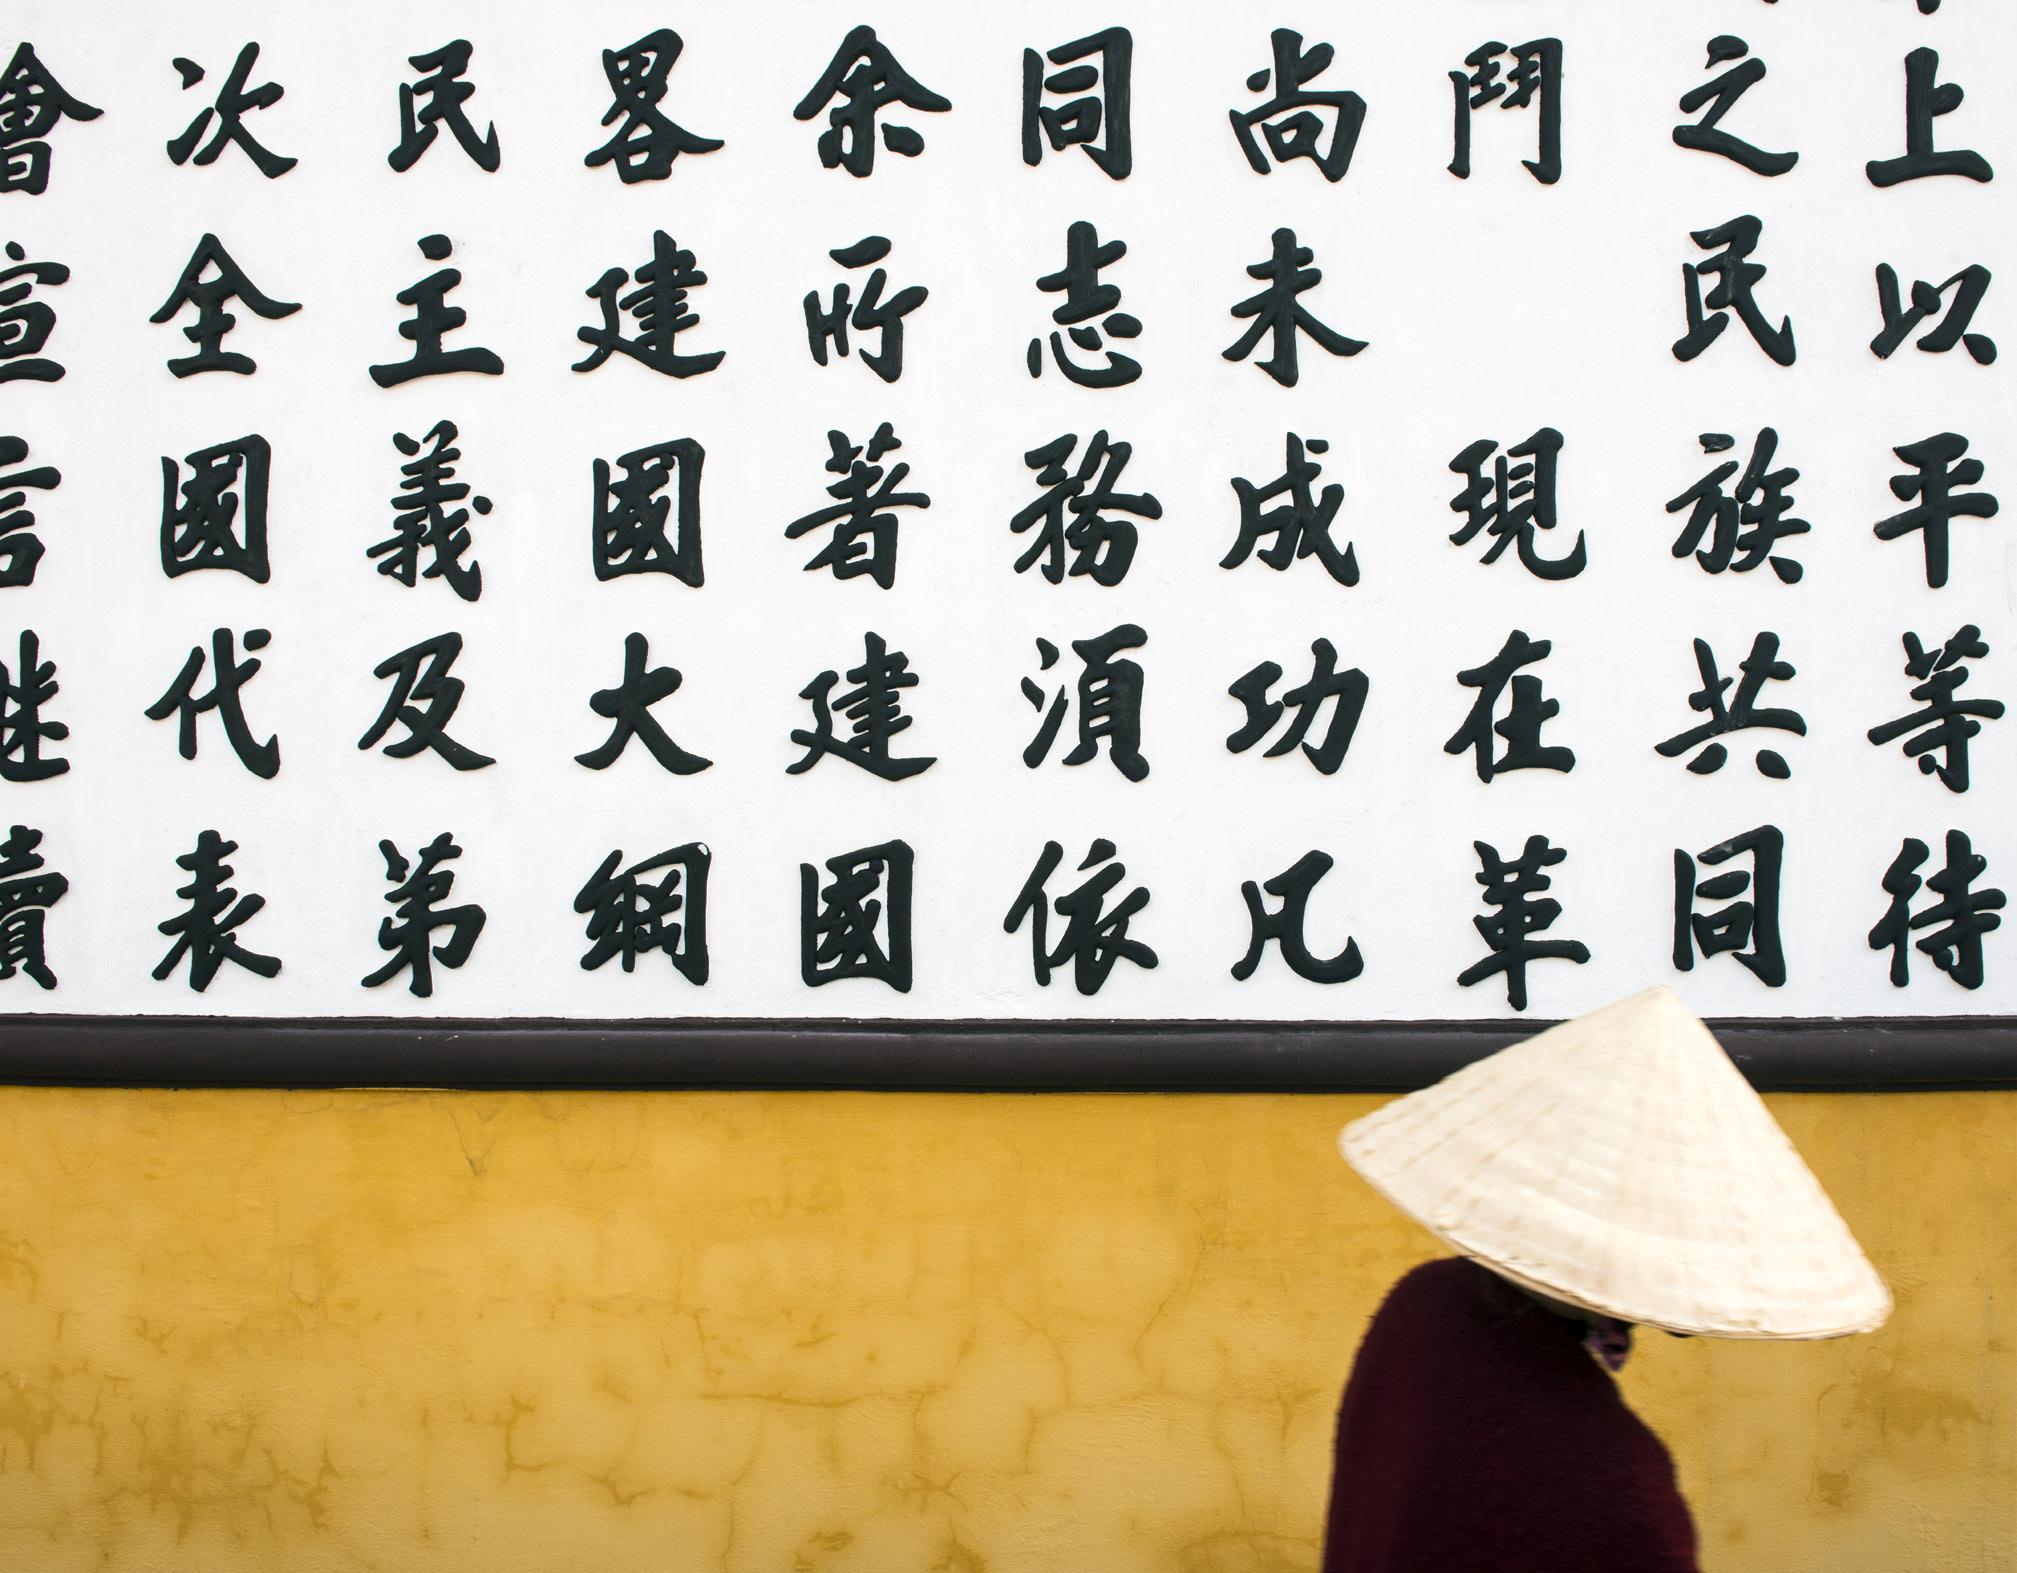 上以平等待
之民族共同
鬥 現在革
尚未成功凡
同志務須依
余所著建國
畧建國大綱
民主義及第
次全國代表
會宣言繼續